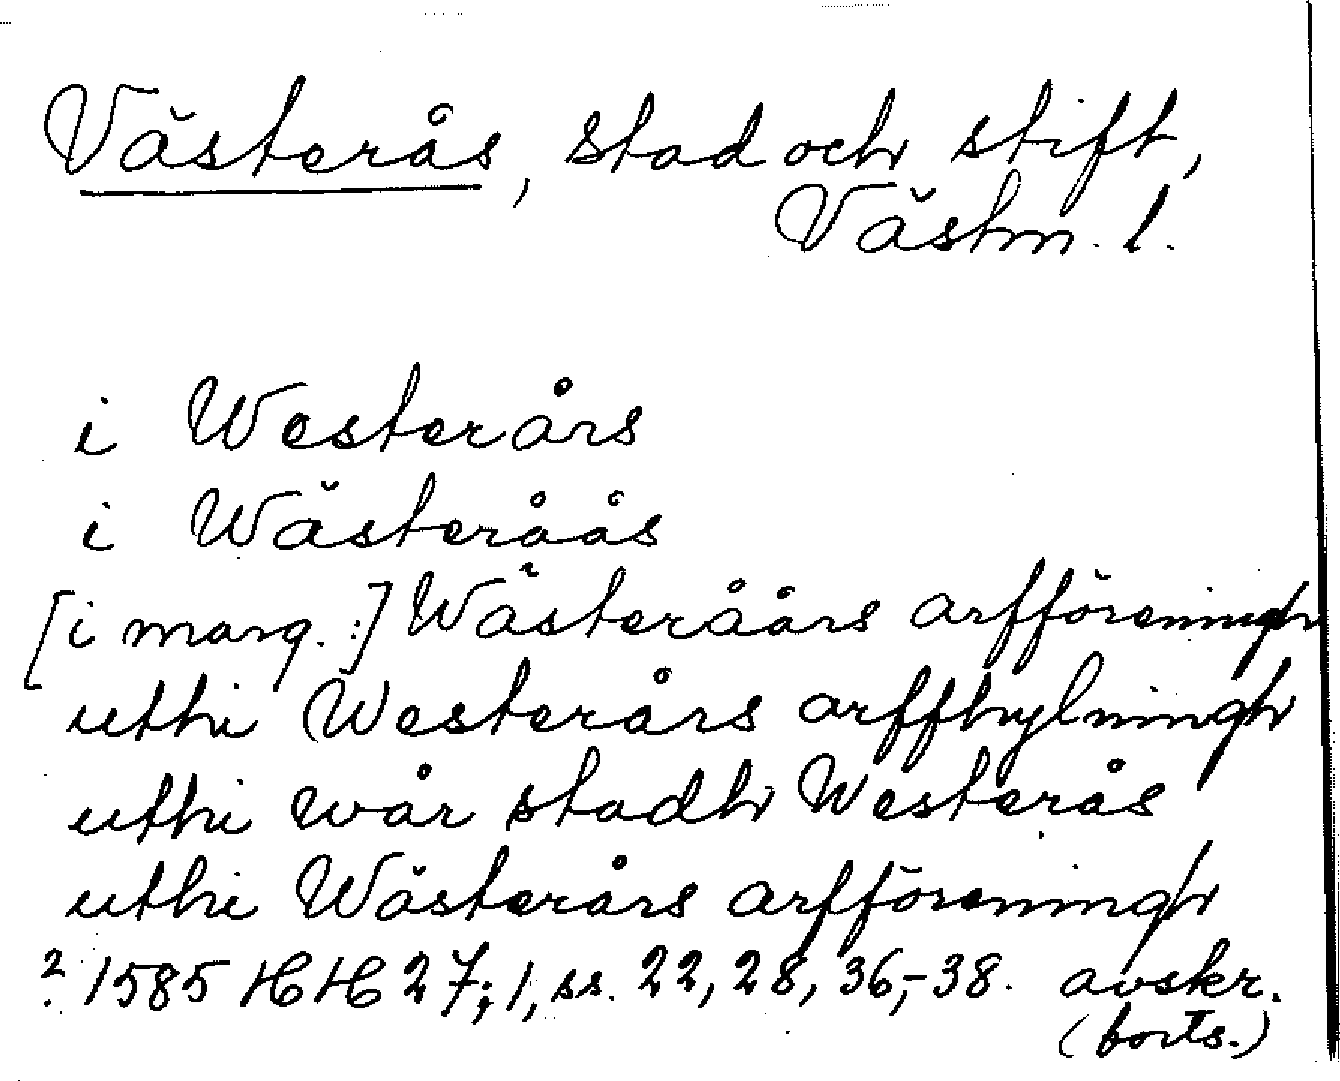 Västerås, stad och stift,
Västm. l.
i Westerårs
i Wästeråås
[i marg.:] Wästeråårs arfföreningh
uthi Westerårs arffhylningh
uthi wår stadh Westerås
uthi Wästerårs arfföreningh
? 1585 HH 27; 1, ss. 22, 28, 36,-38. avskr.
(forts.)